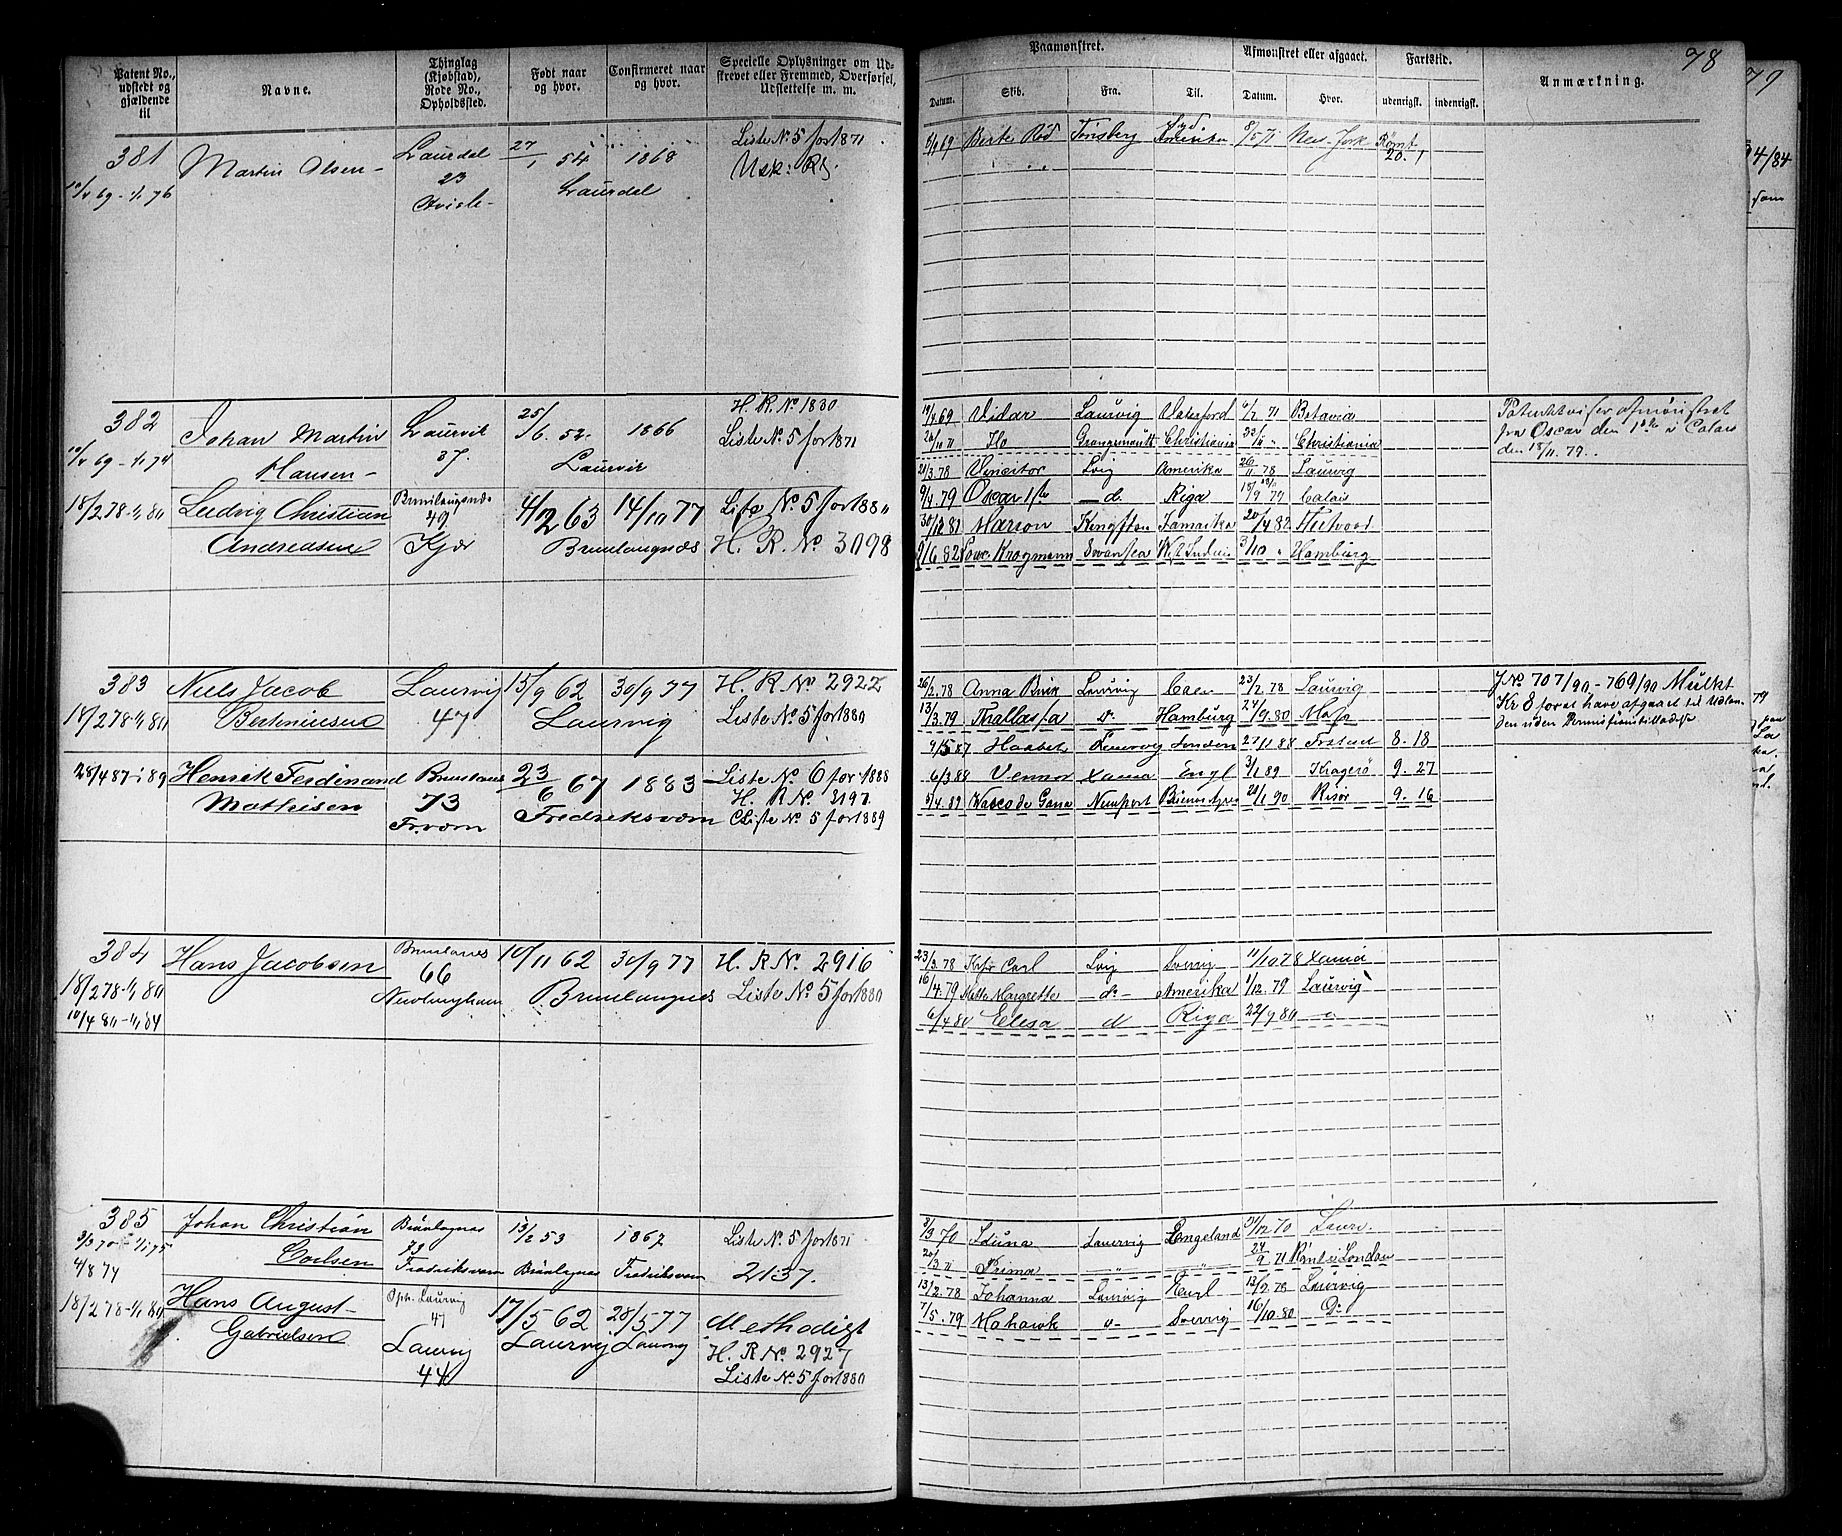 Patent No., udstedt og gjældende til
Navne.
Thinglag (Kjøbstad), Rode No., Opholdssted.
Født naar og hvor.
Confirmeret naar og hvor.
Specielle Oplysninger om Udskrevet eller Fremmed, Overførsel, Udslettelse m. m.
Paamønstret.
Datum. Skib. Fra. Til.
Afmønstret eller afgaaet.
Datum. Hvor.
Fartstid.
udenrigsk. indenrigsk.
Anmærkning.
78
79
381
Martin Olsen
Laurdal
23
27/1 54 1868
Laurdal
Liste No 5 for 1871
Tønsberg
Syd Amerika 8/5 71 New-York Rømt
20.1
94/84
382
Johan Martin
Hansen
Laurvik
37.
25/6. 52. 1866
Laurvik
H. R. No 1830
Liste No 5 for 1871
Vidar Laurvig Waterford 71 Batavia
Grangemouth Christiania Christiania
21/3.78 Lvig Amerika 26/11 78 Laurvig
9/4 79 Oscar 1ste do Riga 79 Calais
30/12 81 Kingston Jamaika 20/4 82 Fleetwood
Krogmann Swansea Vest Indien 3/10 " Hamburg
Patentviser afmønstret
fra Oscar den 1ste i Calais
den 18/11. 79.
18/2 78 - 1/1 80
Ludvig Christian
Andreasen
Brunlangnæs
49
Kjær
4/12 63 14/10 77
Brunlangnæs
Liste No 5 for 1880
H. R. No 3098
383
18/2 78 - 1/1 80
Niels Jacob
Bertniusen
Laurvig
47
15/9 62 30/9 77
Laurvig
H. R. No 2922
Liste No 5 for 1880
26/2.78 Anna Laurvig 23/2.78 Laurvig
13/3.79 Thallassa do Hamburg 24/9.80
9/5 87 Haabet Laurvig London 27/11 88 8.18
6/3 88 Vennor Xania Engl 3/1 89 Kragerø 9.27
5/4.89 Vasco de Gama Newport Buenos Ayres 28/1 90 Risør 9.16
J No 707/90 - 769/90 Mulkt
Kr 8 for at have afgaaet til Udlan-
den uden Permissionstilladelse
28/4 87 - 1/1 89
Henrik Ferdinand
Mathisen
Brunlanes
73
Frværn
23/6 67 1883
Fredriksværn
Liste No 6 for 1888
H. R No 3197
Liste No 5 for 1889
384
18/2 78 - 1/1 80
10/4 80 - 1/1 84
Hans Jacobsen
Brunlanes
66
10/11 62 30/9 77
Brunlangnæs
H. R No. 2916
Liste No 5 for 1880
23/3.78 Carl Lvig Sverig 11/10.78 Xania
16/4.79 Mette Margrette do Amerika 1/12.79 Laurvig
6/4 80 Elisa d Riga 22/9 80
385
3/3 70 - 1/1 75
4/8 74
Johan Christian
73
Fredriksværn
13/2 53 1867
Fredriksværn
Liste No 5 for 1871
2137.
3/3 70 Iduna Laurvig Engeland 31/12 70
Prima 24/9 71 Rømt i London
13/2.78 Johanna Laurvig Engl 12/7 78 Laurvig
7/5.79 Mohawk Sverrig 16/10.80 Do
18/2 78 - 1/1 80
Hans August
Gabrielsen
Oph. Laurvig
47
Laurvig
44
17/5 62 28/5 77
Laurvig Laurvig
Methodist
H. R No. 2927
Liste No. 5 for 1880